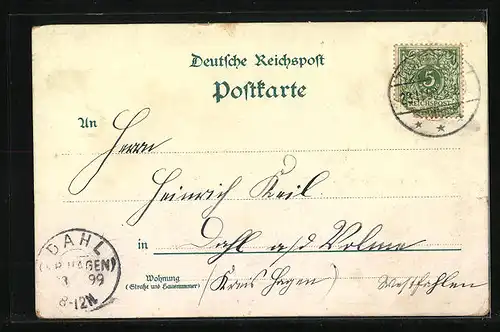 Deutsche Reichspost
Postkarte
5
REICHSPOST
An
Herrn
Heinrich Keil
in Dahl a/d Volme
Wohnung
(Straße und Hausnummer)
(Kreis Hagen) Westfahlen
DAHL
(KR. HAGEN)
99
8-12N.